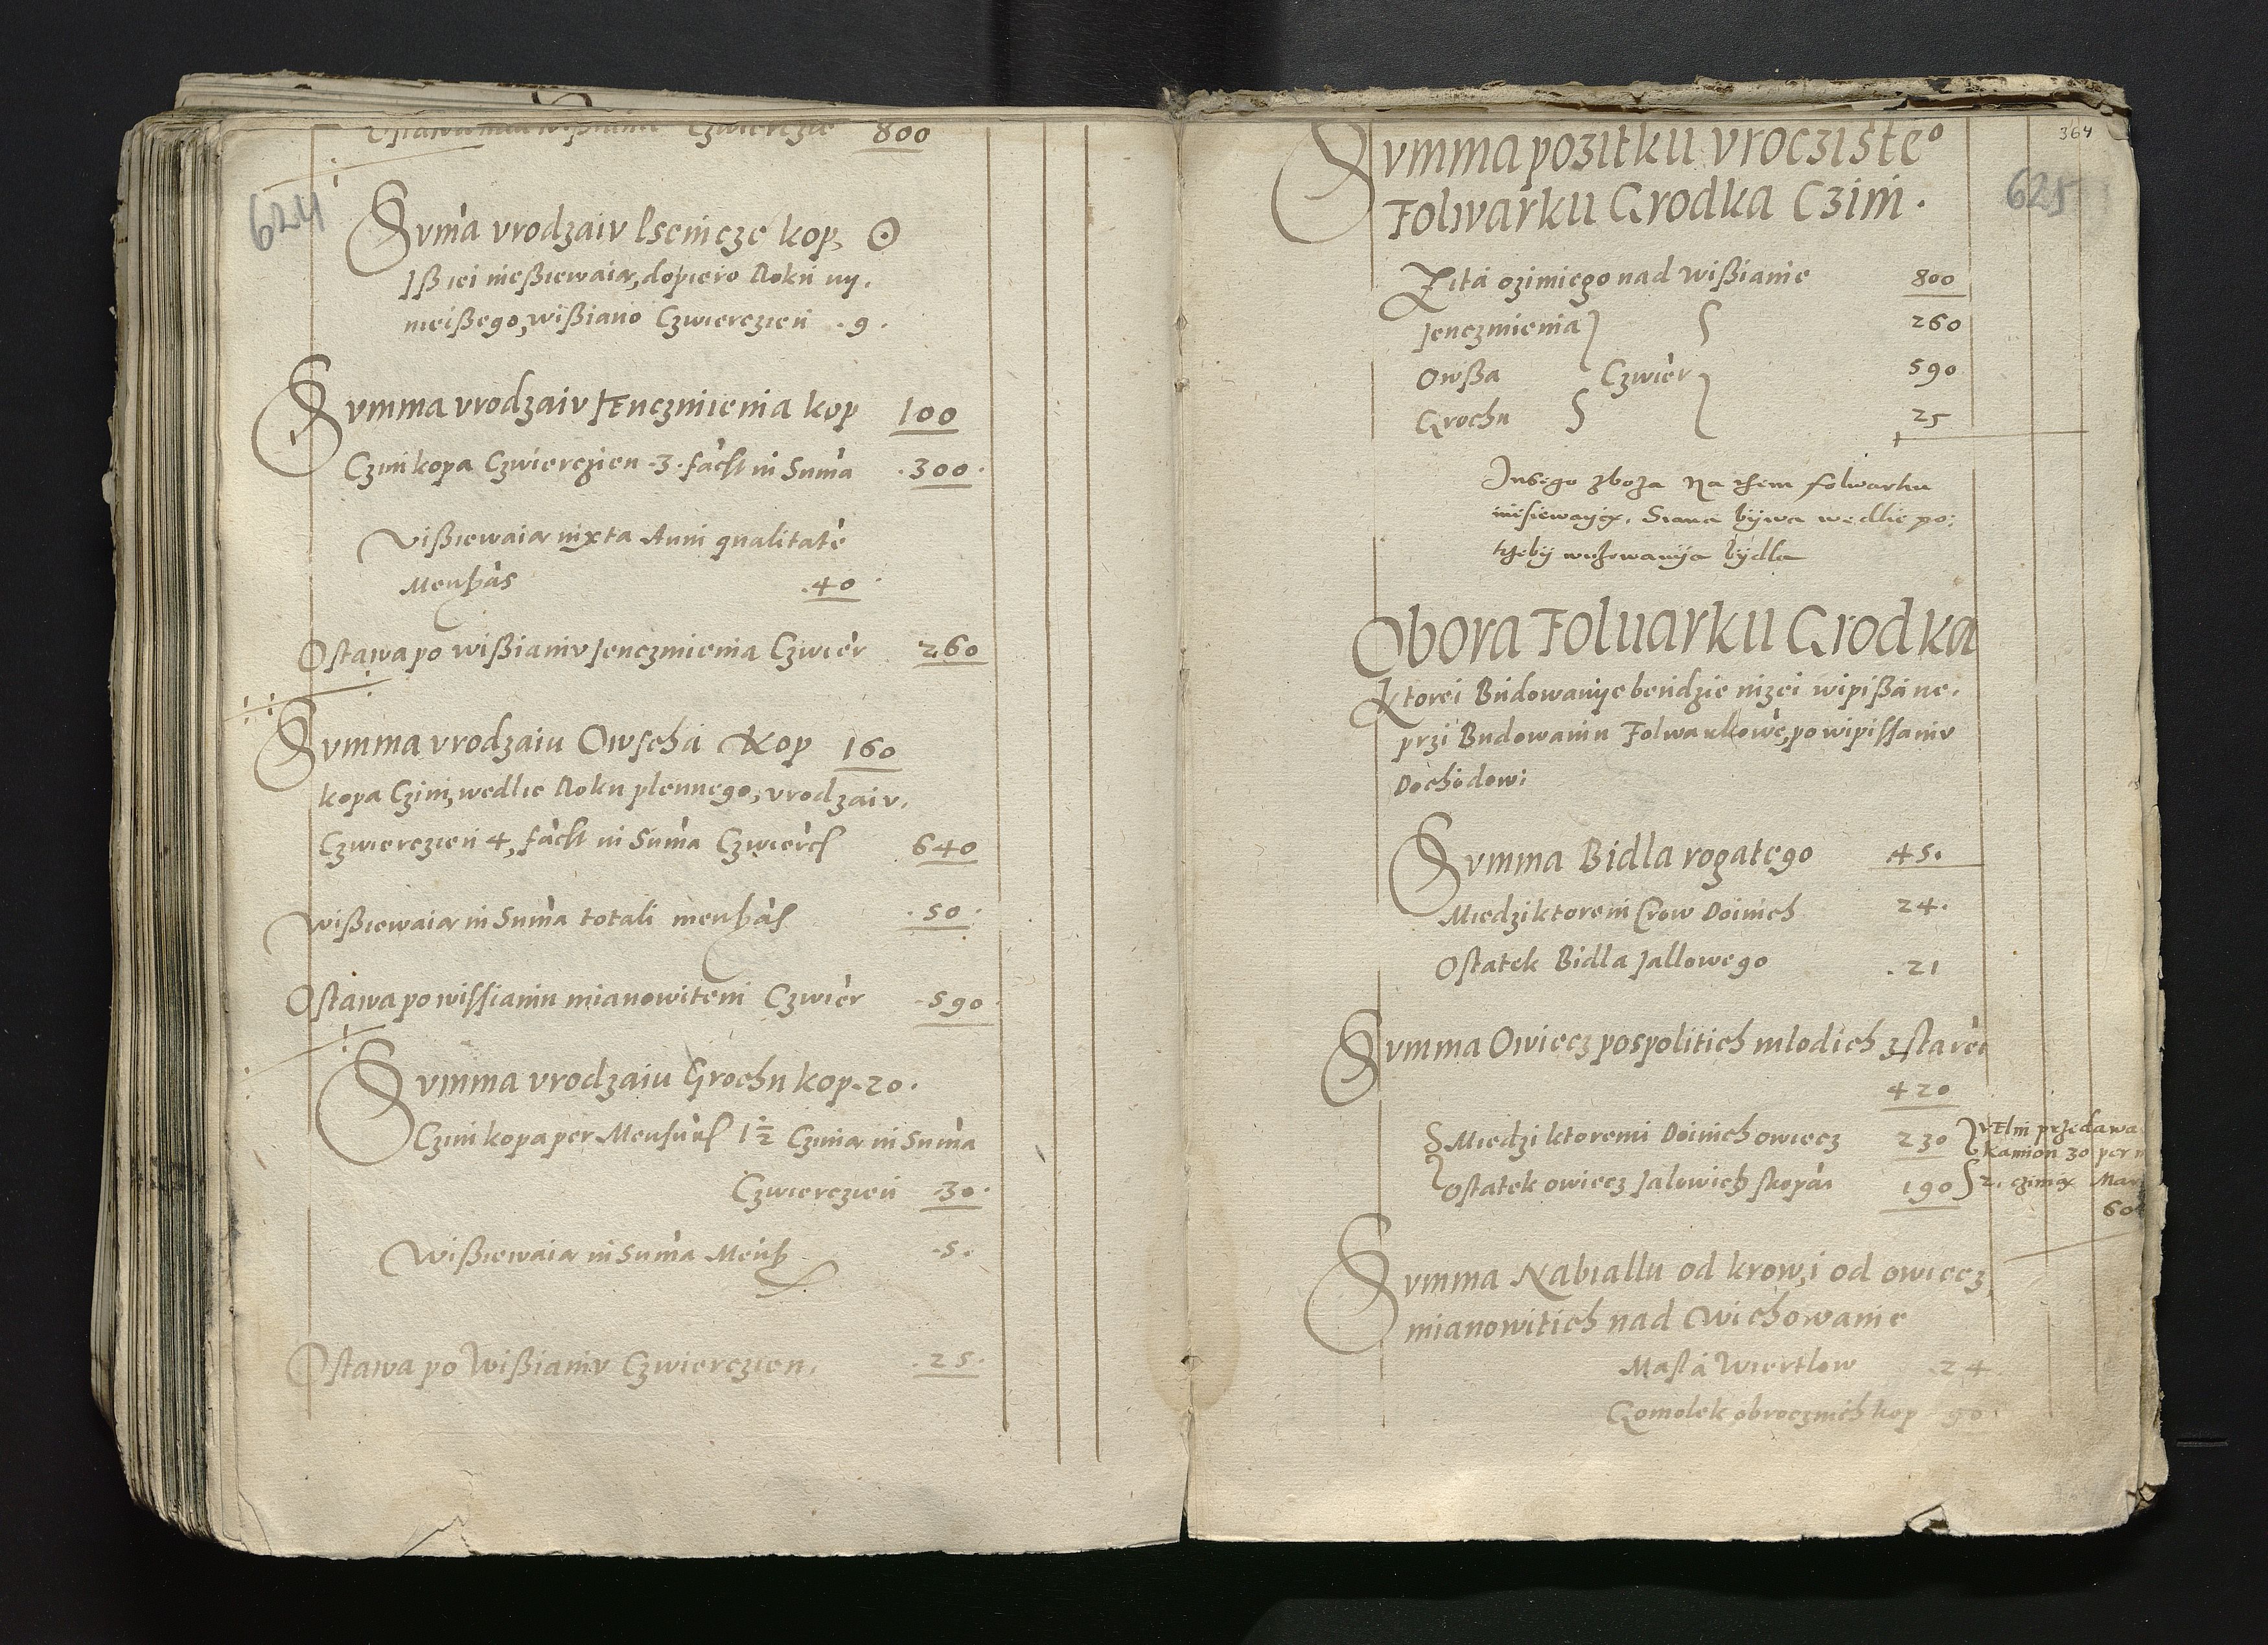 800
624
Suma vrodzaiv Psenicze kop, ⊙
Iß iei nießiewaią, dopiero Roku ny,
nieißego, wißiano Czwierczien .9.
Summa vrodzaiv Jenczmienia kop 100
Czini kopa Czwierczien .3. facit in Suma .300.
Vißiewaią iuxta Anni qualitate
Mensuras .40.
Ostawa po wißianiv Jenczmienia Czwier 260
Summa vrodzaiu Owscha Kop 160
kopa Czini, wedlie Roku plennego, vrodzaiv.
Czwierczien 4, facit in Suma Czwierc 640
Wißiewaią in Suma totali mensuras .50.
Ostawa po wissianiu mianowitem Czwier .590.
Summa vrodzaiu Grochu kop .20.
Czini kopa per Mensuras 1½ Czinia in Suma
Czwierczien .30.
Wißiewaią in Suma Mens .5.
Ostawa po Wißianiv Czwierczien, .25.
364
625
Summa pozitku vroczisteº
Folwarku Grodka Czini.
Zita ozimiego nad wißianie 800
Jenczmienia 260
Owßa Czwier 590
Grochu 25
Insego zboza na them folwarku
niesiewayą. Siana bÿwa wedlie po:
trzebÿ wÿchowanÿa bÿdla
Obora Folwarku Grodka
Ktorei Budowanÿe bendzie nizei wipißane.
przi Budowaniu Folwarkowe, po wipissaniv
Dochodow:
Summa Bidla rogatego 45.
Miedzi ktorem Crow Doinich 24.
Ostatek Bidla Jallowego .21
Summa Owiecz pospolitich mlodich z stare
420
Miedzi ktoremi Doinich owiecz 230
Ostatek owiecz Jalowich skopa 190
Velni przedawa
kamion 30 per
2. czinią Mar
60
Summa Nabiallu od krow, i od owiecz
mianowitich nad Wichowanie
Masla Wiertlow .24
Gomolek obrocznich kop 90